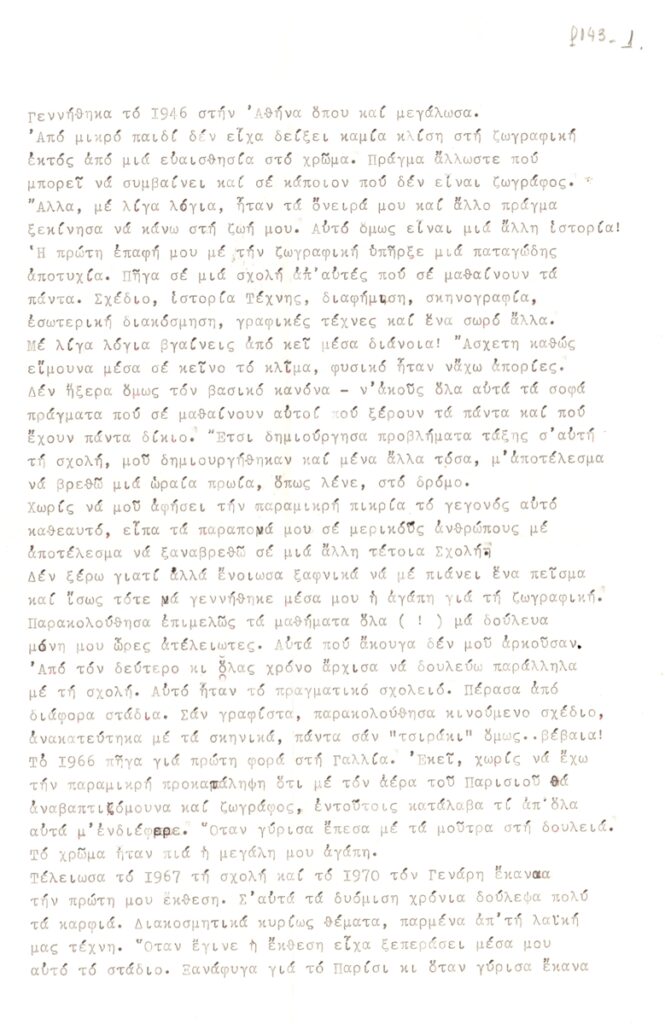 ρ143-1.
Γεννήθηκα τό 1946 στήν Ἀθήνα ὅπου καί μεγάλωσα.
Ἀπό μικρό παιδί δέν εἶχα δείξει καμία κλίση στή ζωγραφική
ἐκτός ἀπό μιά εὐαισθησία στό χρῶμα. Πράγμα ἄλλωστε πού
μπορεῖ νά συμβαίνει καί σέ κάποιον πού δέν εἶναι ζωγράφος.
Ἄλλα, μέ λίγα λόγια, ἦταν τά ὄνειρά μου καί ἄλλο πράγμα
ξεκίνησα νά κάνω στή ζωή μου. Αὐτό ὅμως εἶναι μιά ἄλλη ἱστορία!
Ἡ πρώτη ἐπαφή μου μέ τήν ζωγραφική ὑπῆρξε μιά παταγώδης
ἀποτυχία. Πῆγα σέ μιά σχολή ἀπ'αὐτές πού σέ μαθαίνουν τά
πάντα. Σχέδιο, ἱστορία Τέχνης, διαφήμιση, σκηνογραφία,
ἐσωτερική διακόσμηση, γραφικές τέχνες καί ἕνα σωρό ἄλλα.
Μέ λίγα λόγια βγαίνεις ἀπό κεῖ μέσα διάνοια! Ἄσχετη καθώς
εἴμουνα μέσα σέ κεῖνο τό κλῖμα, φυσικό ἦταν νἄχω ἀπορίες.
Δέν ἤξερα ὅμως τόν βασικό κανόνα - ν'ἀκοῦς ὅλα αὐτά τά σοφά
πράγματα πού σέ μαθαίνουν αὐτοί πού ξέρουν τά πάντα καί πού
ἔχουν πάντα δίκιο. Ἔτσι δημιούργησα προβλήματα τάξης σ'αὐτή
τή σχολή, μοῦ δημιουργήθηκαν καί μένα ἄλλα τόσα, μ'ἀποτέλεσμα
νά βρεθῶ μιά ὡραία πρωία, ὅπως λένε, στό δρόμο.
Χωρίς νά μοῦ ἀφήσει τήν παραμικρή πικρία τό γεγονός αὐτό
καθεαυτό, εἶπα τά παραπονά μου σέ μερικούς ἀνθρώπους μέ
ἀποτέλεσμα νά ξαναβρεθῶ σέ μιά ἄλλη τέτοια Σχολή.
Δέν ξέρω γιατί ἀλλά ἔνοιωσα ξαφνικά νά μέ πιάνει ἕνα πεῖσμα
καί ἴσως τότε νά γεννήθηκε μέσα μου ἡ ἀγάπη γιά τή ζωγραφική.
Παρακολούθησα ἐπιμελῶς τά μαθήματα ὅλα ( ! ) μά δούλευα
μόνη μου ὧρες ἀτέλειωτες. Αὐτά πού ἄκουγα δέν μοῦ ἀρκοῦσαν.
Ἀπό τόν δεύτερο κι ὅλας χρόνο ἄρχισα νά δουλεύω παράλληλα
μέ τή σχολή. Αὐτό ἦταν τό πραγματικό σχολειό. Πέρασα ἀπό
διάφορα στάδια. Σάν γραφίστα, παρακολούθησα κινούμενο σχέδιο,
ἀνακατεύτηκα μέ τά σκηνικά, πάντα σάν "τσιράκι" ὅμως..βέβαια!
Τό 1966 πῆγα γιά πρώτη φορά στή Γαλλία. Ἐκεῖ, χωρίς νά ἔχω
τήν παραμικρή προκατάληψη ὅτι μέ τόν ἀέρα τοῦ Παρισιοῦ θά
ἀναβαπτιζόμουνα καί ζωγράφος, ἐντούτοις κατάλαβα τί ἀπ'ὅλα
αὐτά μ'ἐνδιέφερε. Ὅταν γύρισα ἔπεσα μέ τά μοῦτρα στή δουλειά.
Τό χρῶμα ἦταν πιά ἡ μεγάλη μου ἀγάπη.
Τέλειωσα τό 1967 τή σχολή καί τό 1970 τόν Γενάρη ἔκανα
τήν πρώτη μου ἔκθεση. Σ'αὐτά τά δυόμιση χρόνια δούλεψα πολύ
τά καρφιά. Διακοσμητικά κυρίως θέματα, παρμένα ἀπ'τή λαϊκή
μας τέχνη. Ὅταν ἔγινε ἡ ἔκθεση εἶχα ξεπεράσει μέσα μου
αὐτό τό στάδιο. Ξανάφυγα γιά τό Παρίσι κι ὅταν γύρισα ἔκανα